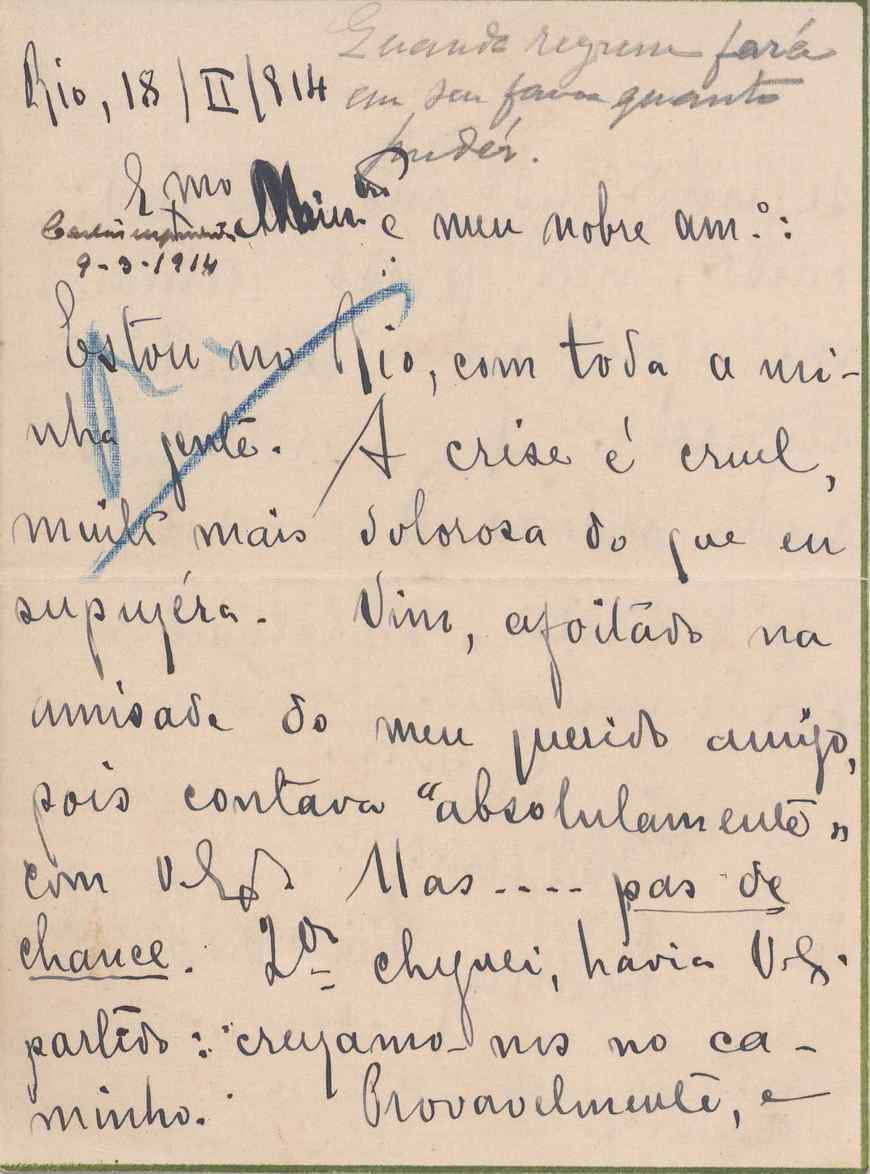 Quando regresse fará
em seu favor quanto
pudér.
Rio, 18/II/914
Exmo Min.º e meu nobre am.º:
9-3-1914
Estou no Rio, com toda a mi-
nha gente. A crise é cruel,
muito mais dolorosa do que eu
supuzéra. Vim, afoitado na
amisade do meu querido amigo,
pois contava "absolutamente"
com V. Exª. Mas .... pas de
chance. Qdo cheguei, havia V. Ex.
partido: "cruzamo-nos no ca-
minho." Provavelmente, e